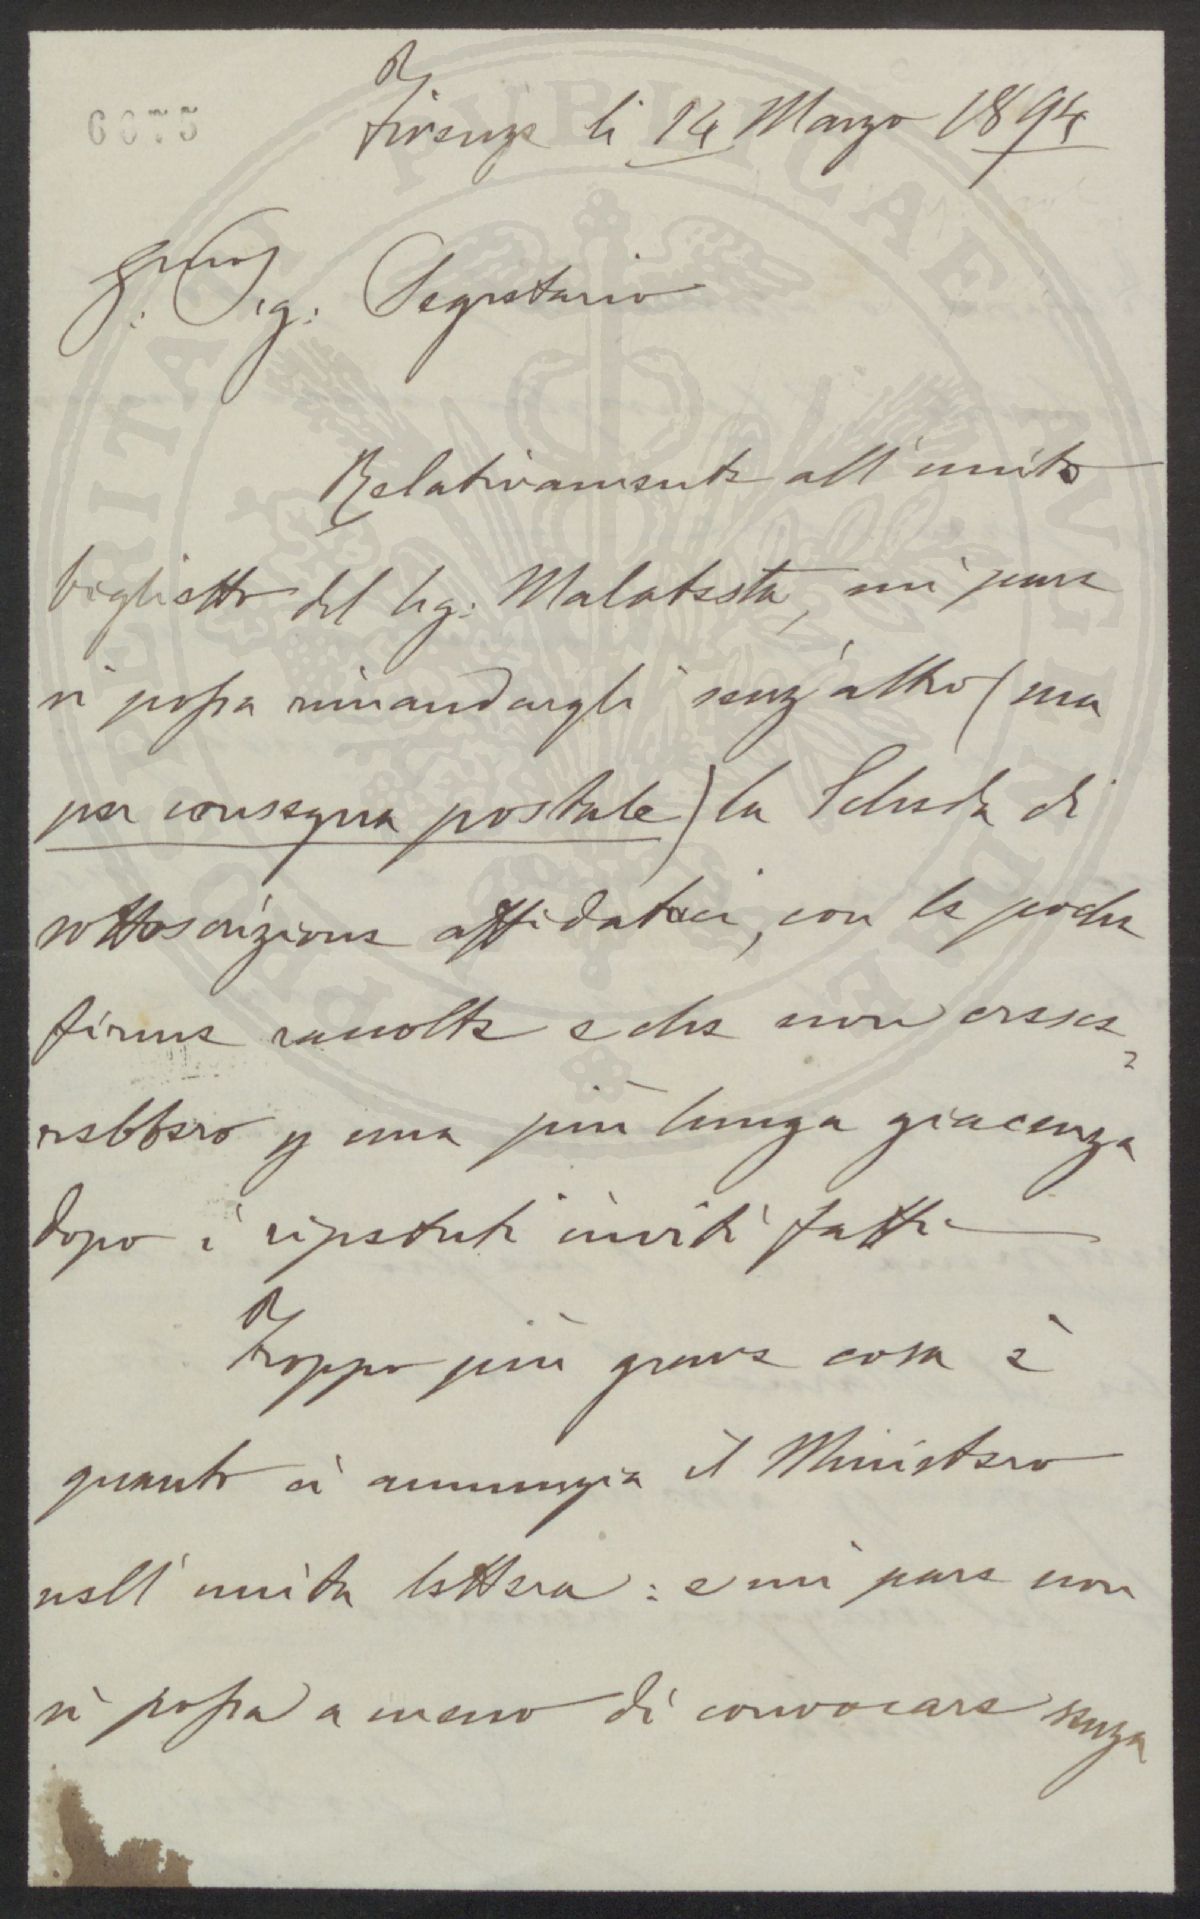 6675
Firenze li 14 Marzo 1894
Sig: Segretario
Relativamente all'unito
biglietto del Sig: Malatesta, mi pare
si possa rimandargli senz'altro (ma
per consegna postale) la Scheda di
sottoscrizione affidataci, con le poche
firme raccolte e che non cresce=
rebbero p una più lunga giacenza
dopo i ripetuti inviti fatti
Troppo più grave cosa è
quanto ci annunzia il Ministero
nell'unita lettera: e mi pare non
si possa a meno di convocare senza
PROSPERITATI PUBLICAE AUGENDAE